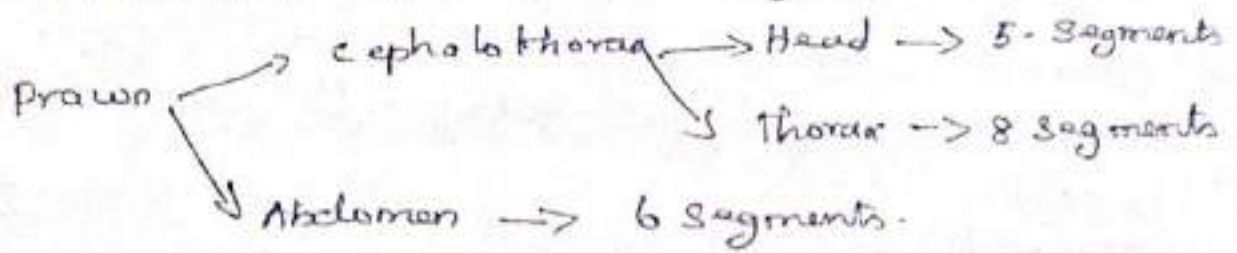 cephalothorax -> Head -> 5. Segments
Prawn
Thorax -> 8 Segments
Abdomen -> 6 Segments.